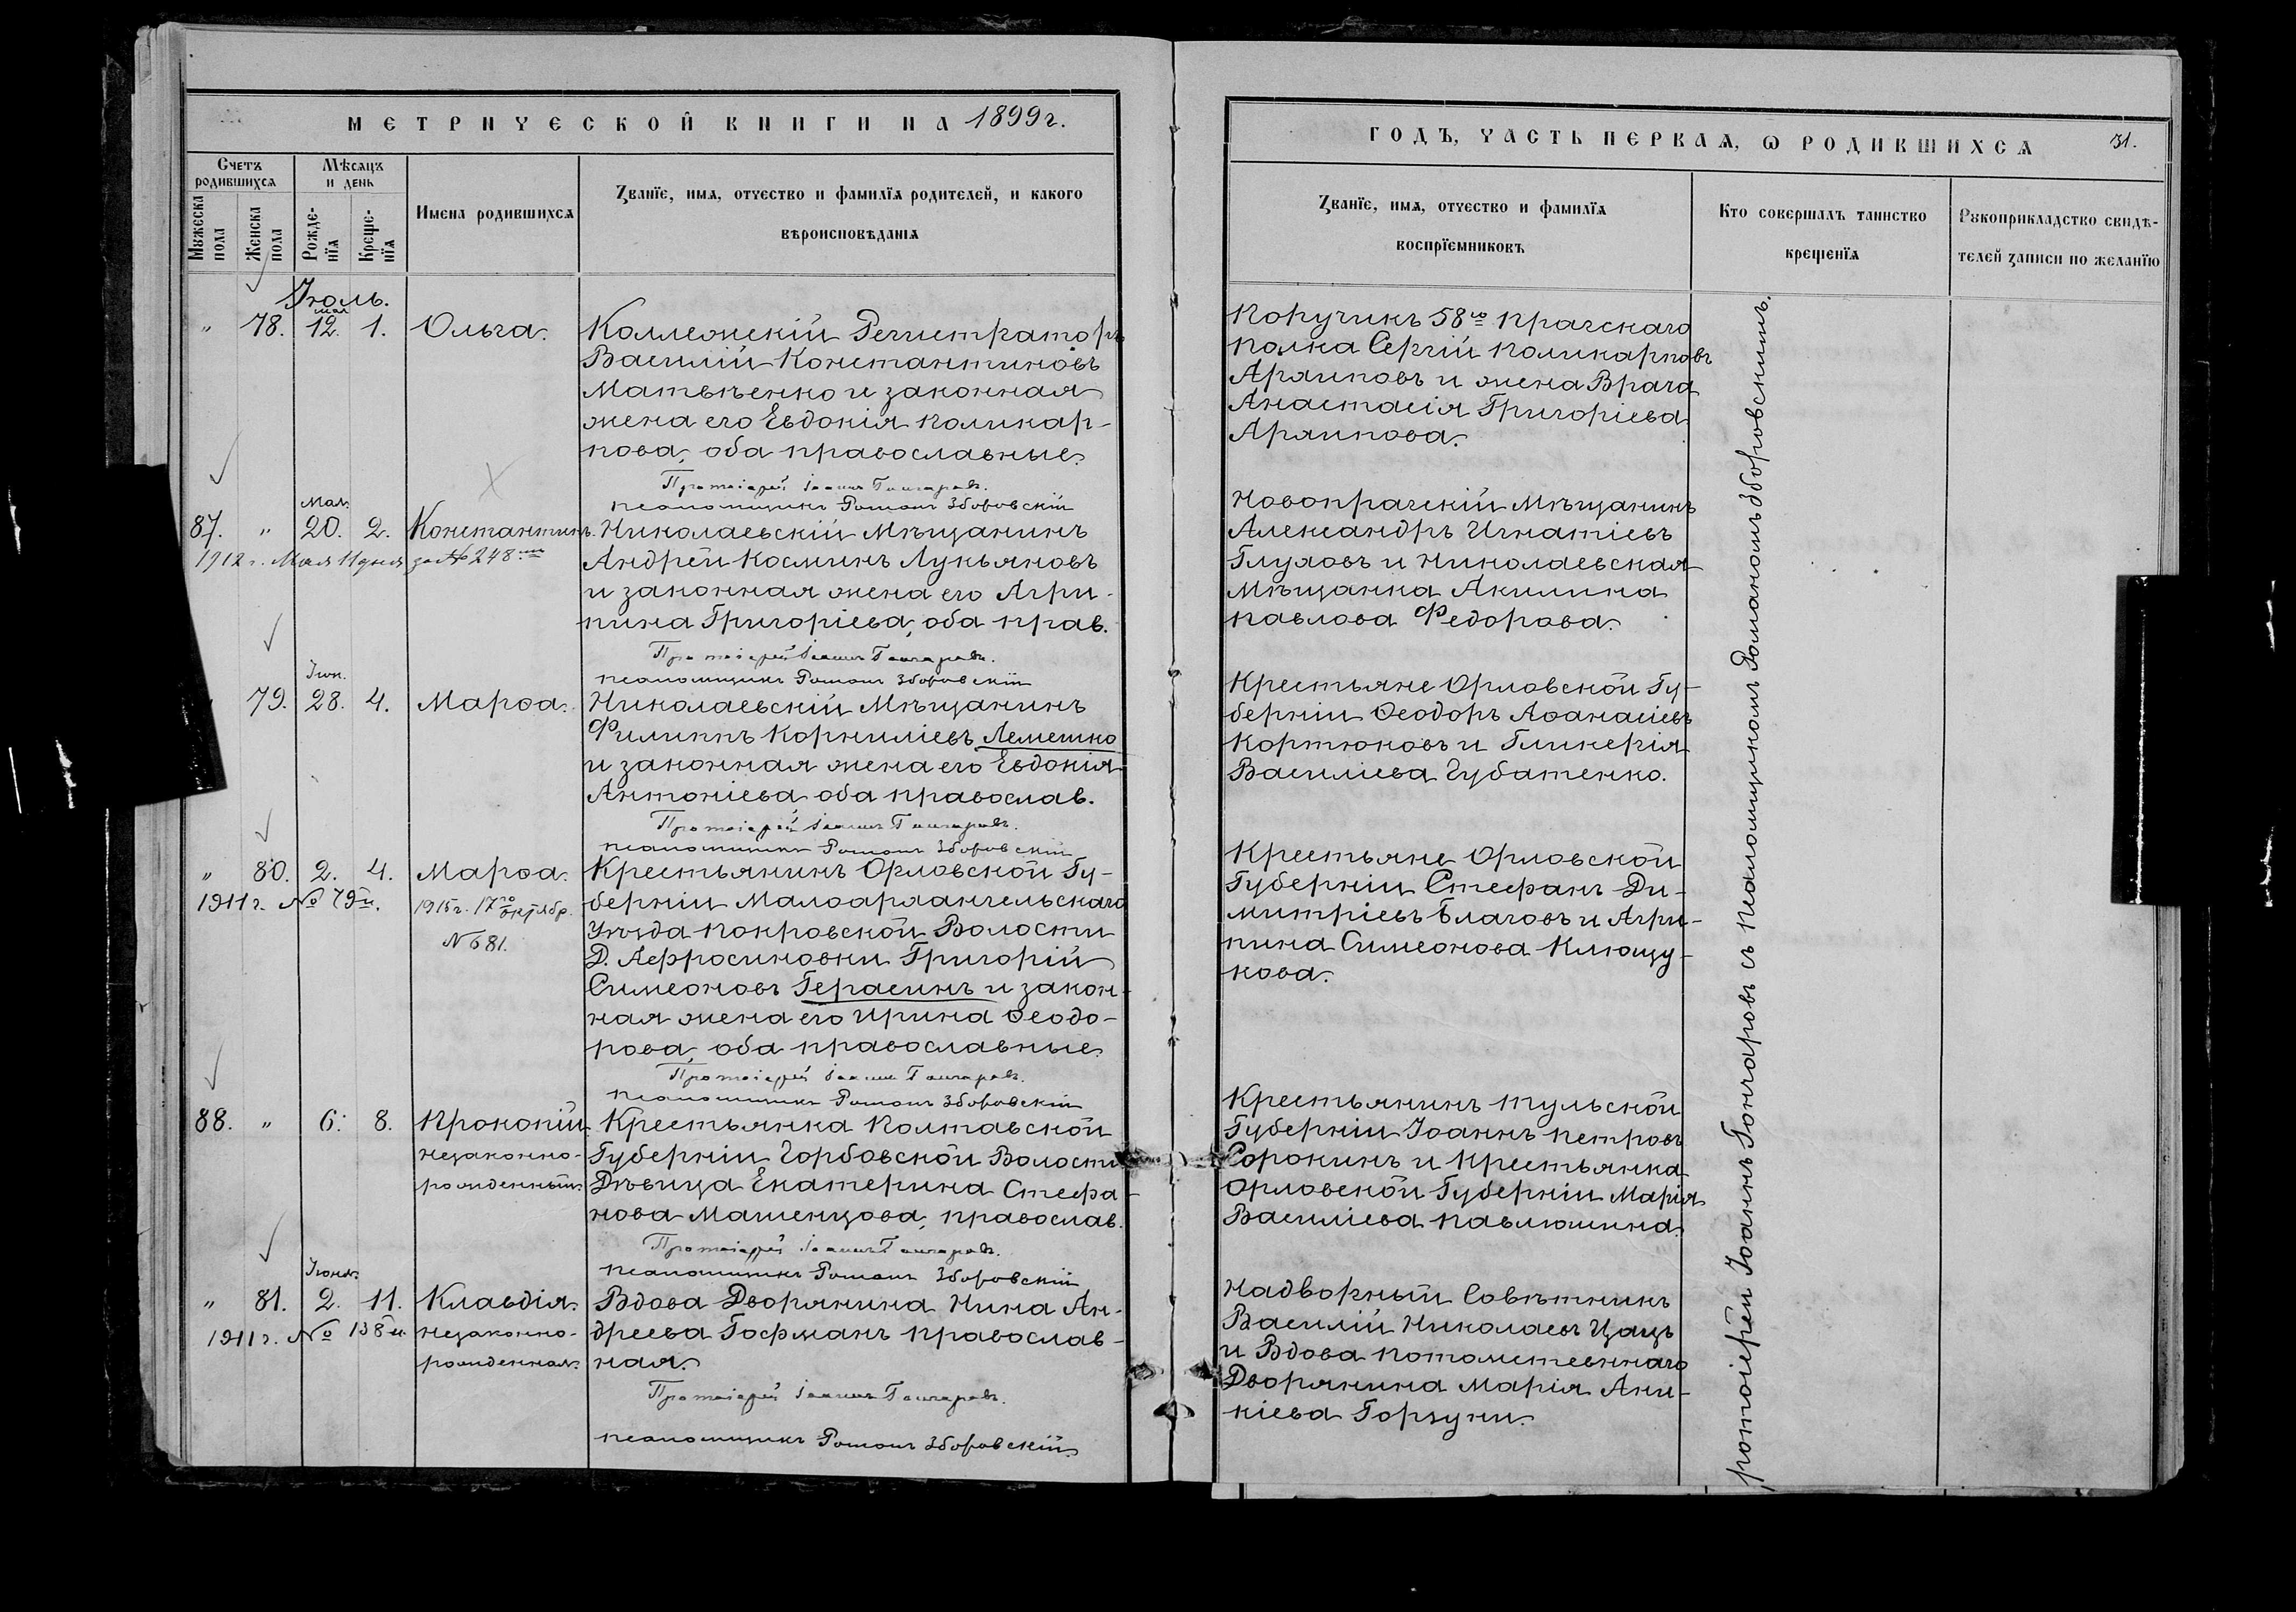 МЕТРИЧЕСКОЙ КНИГИ НА 1899 г.
Счетъ родившихся
Мѣсяцъ и день
Мужеска пола
Женска пола
Рожденїя
Крещенїя
Имена родившихся
Званїе, имя, отчество и фамилїя родителей, и какого
вѣроисповѣданія
Іюль.
мая
" 78. 12. 1. Ольга.
Коллежскій Регистраторъ
Василій Константиновъ
Матвѣенко и законная
жена его Евдокія Поликар-
пова, оба православные.
Протоіерей Іоаннъ Гончаровъ.
псаломщикъ Романъ Зборовскій
Мая.
87. " 20. 2. Константинъ.
1912 г. Мая 11 дня за № 248
Николаевскій Мѣщанинъ
Андрей Косминъ Лукьяновъ
и законная жена его Агри-
пина Григоріева, оба прав.
Протоіерей Іоаннъ Гончаровъ.
псаломщикъ Романъ Зборовскій
Іюн.
79. 28. 4. Марѳа.
Николаевскій Мѣщанинъ
Филиппъ Корниліевъ Лемешко
и законная жена его Евдокія
Антоніева оба православ.
Протоіерей Іоаннъ Гончаровъ.
псаломщикъ Романъ Зборовскій
" 80. 2. 4. Марѳа.
1911 г. № 79
1915 г. 17го октябр.
№ 681.
Крестьянинъ Орловской Гу-
берніи Малоархангельскаго
Уѣзда Покровской Волости
Д. Аефросиновки Григорій
Симеоновъ Герасинъ и закон-
ная жена его Ирина Ѳеодо-
рова, оба православные
Протоіерей Іоаннъ Гончаровъ.
псаломщикъ Романъ Зборовскій
88. " 6. 8. Прокопій
незаконно-
рожденный.
Крестьянка Полтавской
Губерніи Горбовской Волости
Дѣвица Екатерина Стефа-
нова Машенцова, православ.
Протоіерей Іоаннъ Гончаровъ.
псаломщикъ Романъ Зборовскій
Іюня.
" 81. 2. 11. Клавдія.
1911 г. № 138
незаконно-
рожденная.
Вдова Дворянина Нина Ан-
дреева Гофманъ православ-
ная.
Протоіерей Іоаннъ Гончаровъ.
псаломщикъ Романъ Зборовскій.
ГОДЪ, ЧАСТЬ ПЕРВАЯ, Ѡ РОДИВШИХСЯ
31.
Званїе, имя, отчество и фамилїя
воспрїемниковъ
Кто совершалъ таинство
крещенїя
Рукоприкладство свидѣ-
телей записи по желанїю
Поручикъ 58го Прагскаго
Полка Сергій Поликарповъ
Архиповъ и жена Врача
Анастасія Григоріева
Архипова.
Новопрагскій Мѣщанинъ
Александръ Игнатіевъ
Глуховъ и Николаевская
Мѣщанка Акилина
Павлова Федорова.
Крестьяне Орловской Гу-
берніи Ѳеодоръ Аѳанасіевъ
Кортюковъ и Гликерія
Василіева Губатенко.
Крестьяне Орловской
Губерніи Стефанъ Ди-
митріевъ Благовъ и Агри-
пина Симеонова Клющу-
кова.
Крестьянинъ Тульской
Губерніи Іоаннъ Петровъ
Сорокинъ и Крестьянка
Орловской Губерніи Марія
Василіева Павлюшина.
Надворный Совѣтникъ
Василій Николаевъ Цацъ
и Вдова Потомственнаго
Дворянина Марія Ани-
кіева Горзуни.
Протоіерей Іоаннъ Гончаровъ съ Псаломщикомъ Романомъ Зборовскимъ.